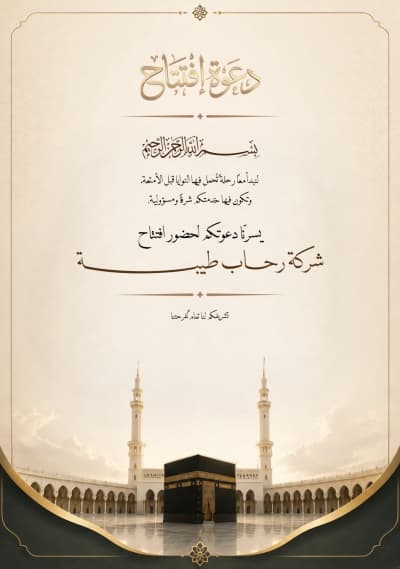 دعوة إفتتاح
بسم الله الرحمن الرحيم
لنبدأ معًا رحلةً تُحمل فيها النوايا قبل الأمتعة،
وتكون فيها خدمتكم شرفًا ومسؤولية.
يسرنا دعوتكم لحضور افتتاح
شركة رحاب طيبة
تشريفكم لنا تمام لفرحتنا